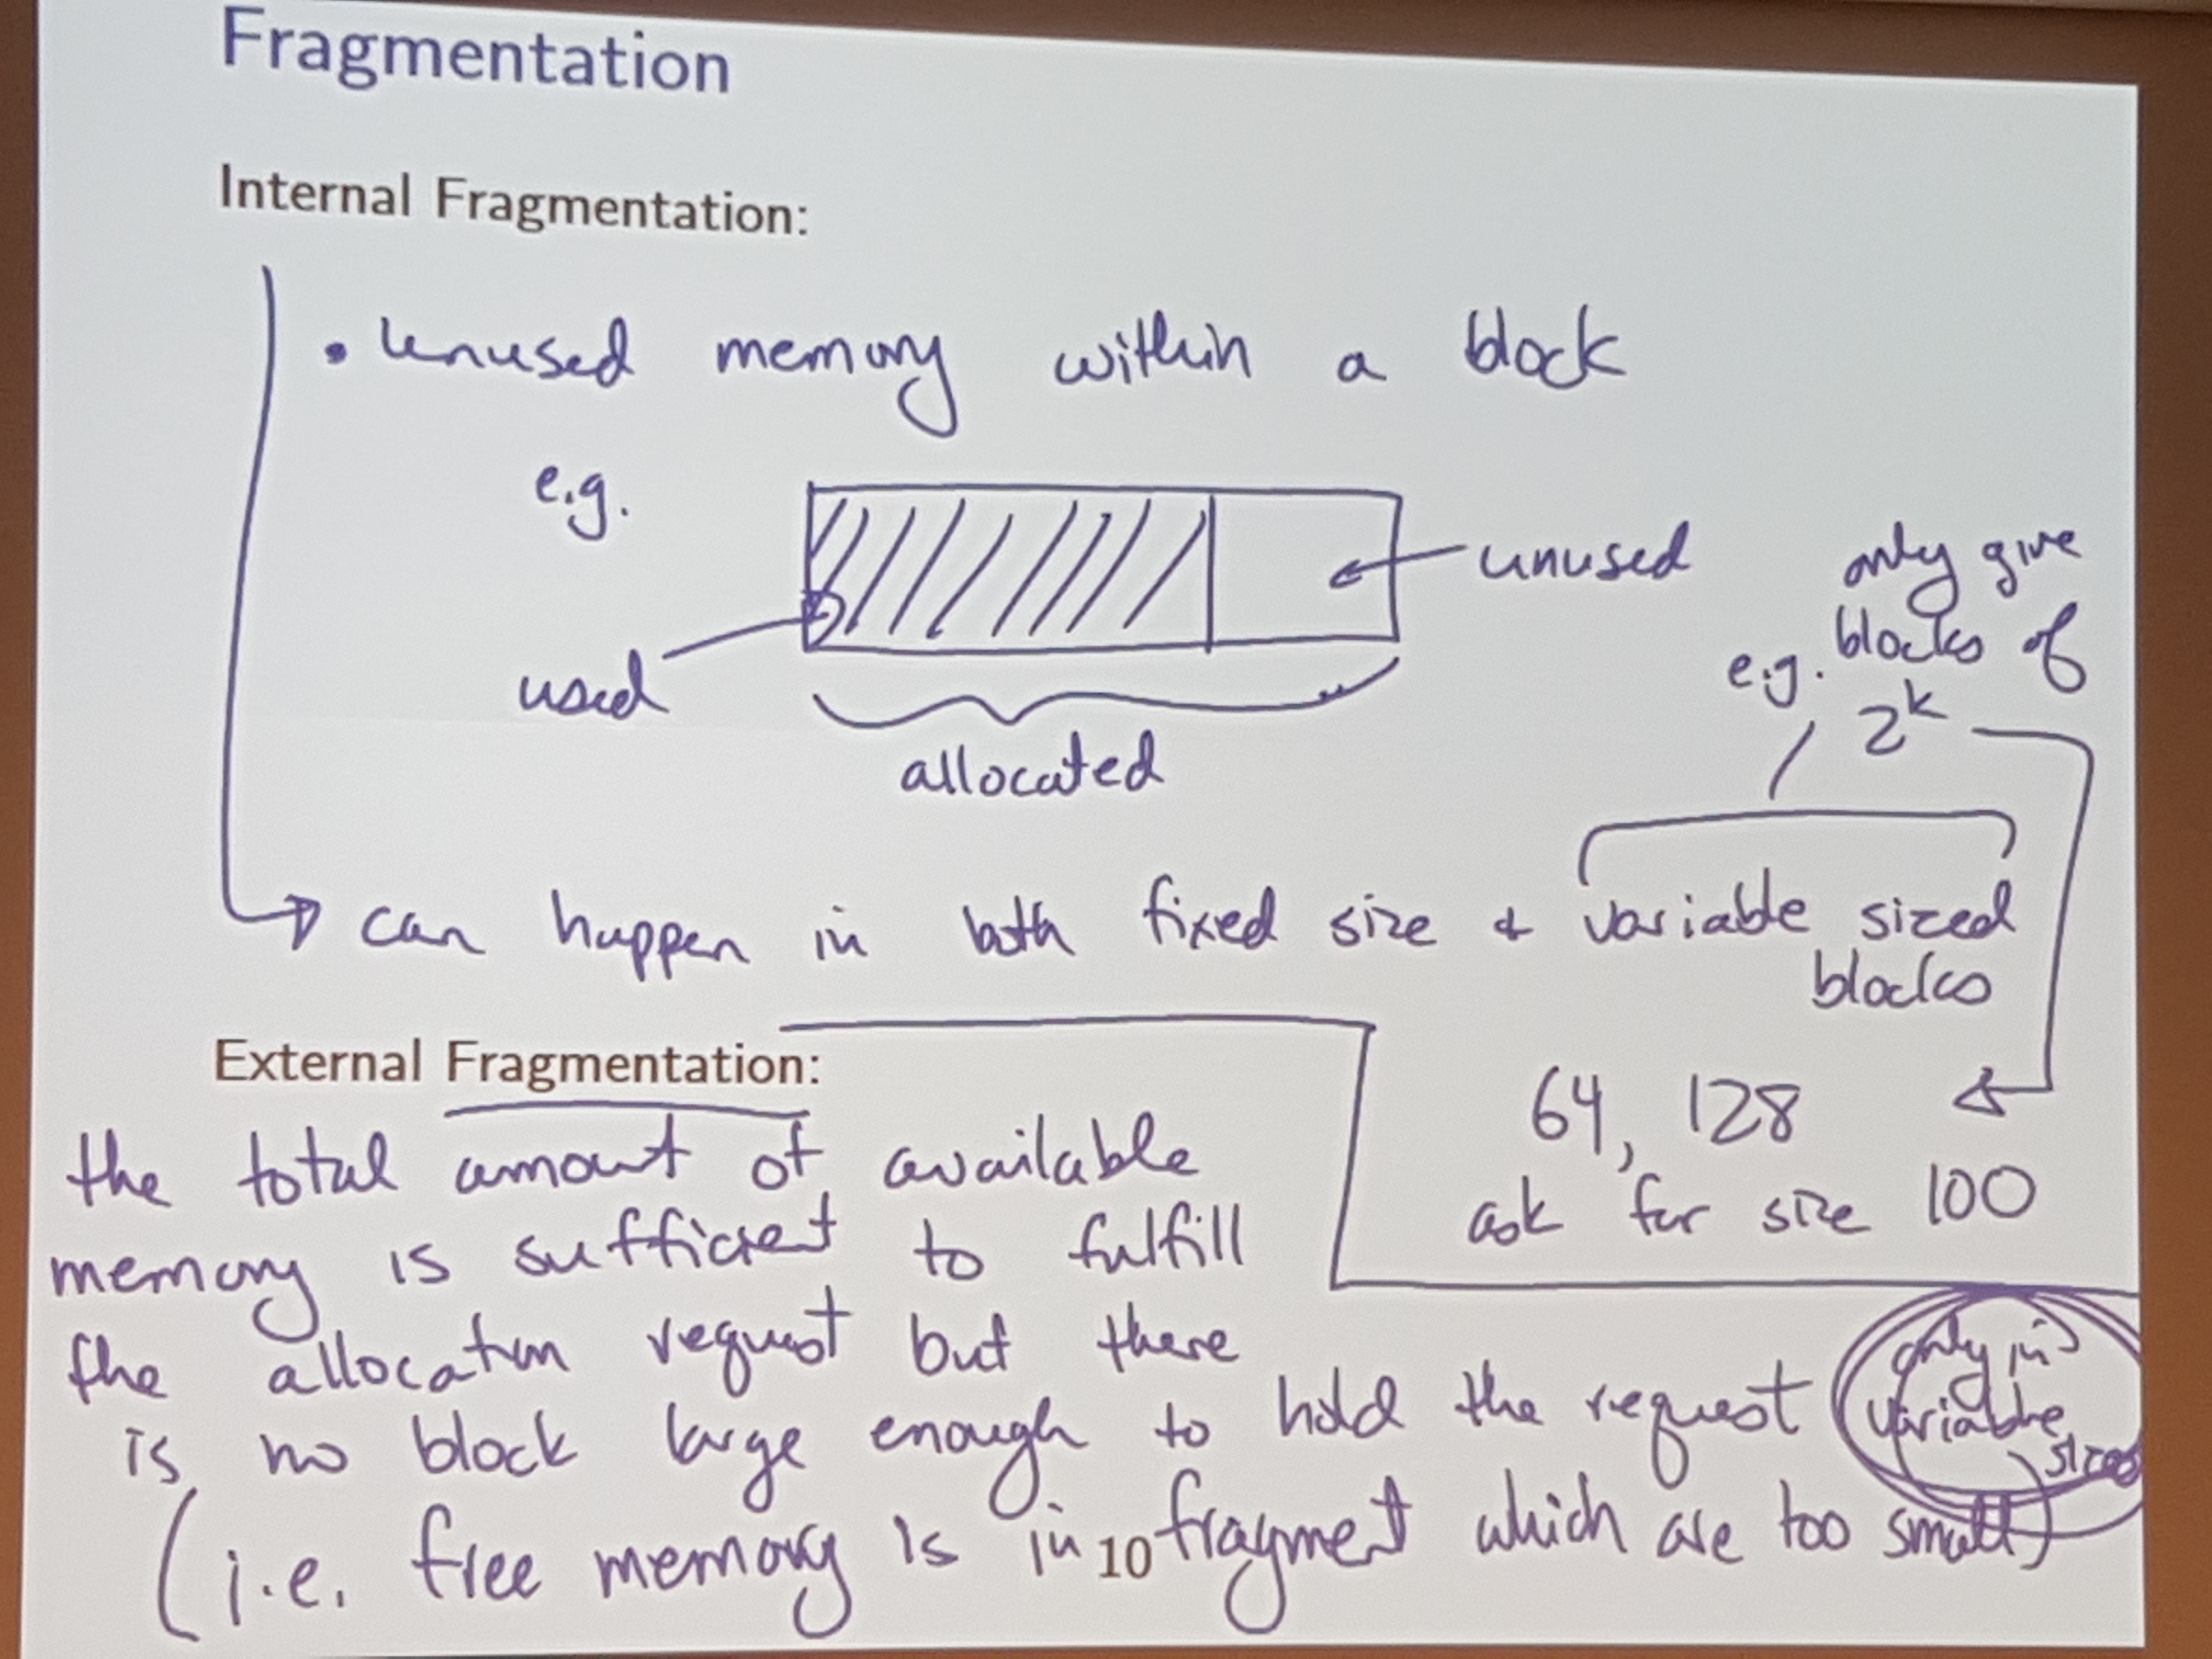 Fragmentation
Internal Fragmentation:
• Unused memory within a block
e.g.
unused
used
allocated
only give
e.g. blocks of
2^k
can happen in both fixed size & variable sized
blocks
64, 128
ask for size 100
External Fragmentation:
the total amount of available
memory is sufficient to fulfill
the allocation request but there
is no block large enough to hold the request
only in
variable
sized
(i.e. free memory is in fragment which are too small)
10